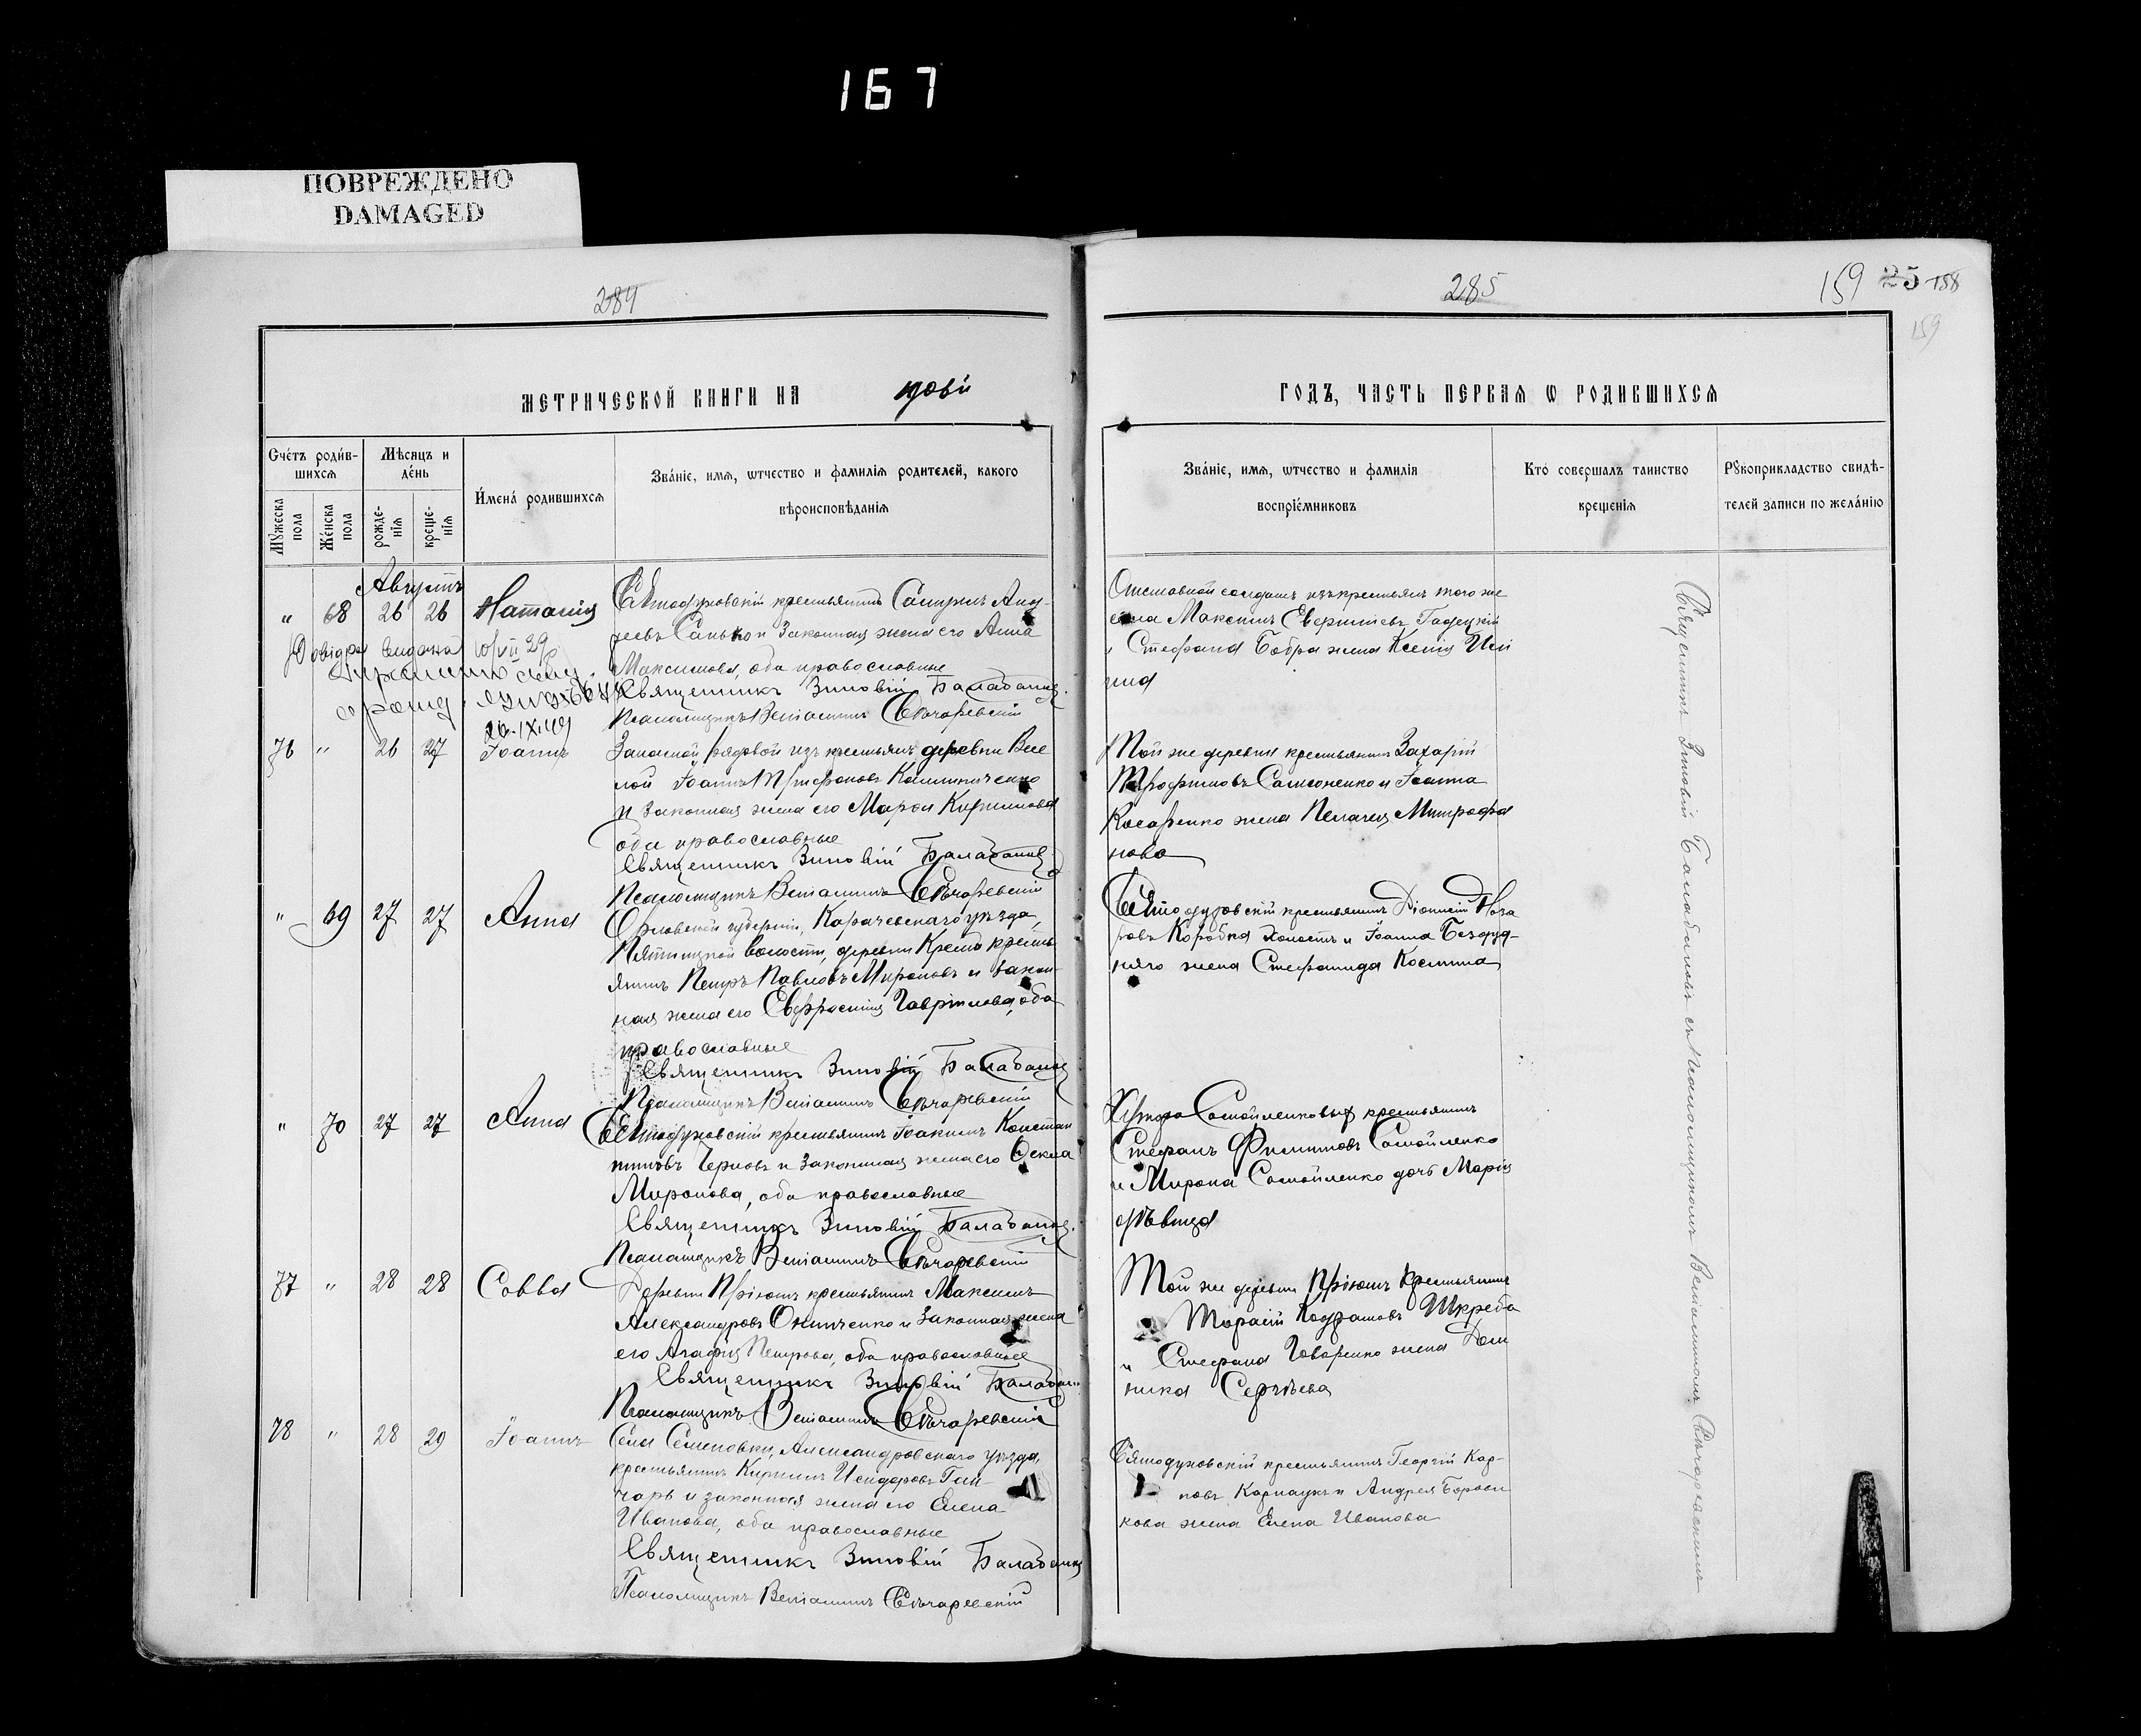 167
ПОВРЕЖДЕНО
DAMAGED
284
МЕТРИЧЕСКОЙ КНИГИ НА 1906й
Счётъ родившихся
Мѣсяцъ и день
Имена родившихся
Званіе, имя, ѿтчество и фамилія родителей, какого вѣроисповѣданія
Мужеска пола
Женска пола
рожденія
крещенія
Августъ
" 68 26 26 Наталія
Крестьянинъ
Андреевъ Санько и законная жена его Анна
Максимова, оба православные
Священникъ Зиновій Балабановъ
Псаломщикъ Веніаминъ Свѣчаревскій
26.IX.49
76 " 26 27 Іоаннъ
Запасной рядовой изъ крестьянъ деревни Весе
лой Іоаннъ Калиниченко
и законная жена его Марѳа Кириллова
оба православные
Священникъ Зиновій Балабановъ
Псаломщикъ Веніаминъ Свѣчаревскій
" 69 27 27 Анна
Орловской губерніи, Карачевскаго уѣзда,
Пятницкой волости, деревни кресть
янинъ Петръ Павловъ Мироновъ и закон
ная жена его Евфросинія Гаврилова, оба
православные
Священникъ Зиновій Балабановъ
Псаломщикъ Веніаминъ Свѣчаревскій
" 70 27 27 Анна
Святодуховскій крестьянинъ Іоакимъ Констан
тиновъ Черновъ и законная жена его Ѳекла
Миронова, оба православные
Священникъ Зиновій Балабановъ
Псаломщикъ Веніаминъ Свѣчаревскій
77 " 28 28 Савва
Деревни Пріютъ крестьянинъ Максимъ
Александровъ Онипченко и законная жена
его Агафія Петрова, оба православные
Священникъ Зиновій Балабановъ
Псаломщикъ Веніаминъ Свѣчаревскій
78 " 28 29 Іоаннъ
Села Семеновки, Александровскаго уѣзда,
крестьянинъ Кириллъ Исидоровъ Гон
чаръ и законная жена его Елена
Иванова, оба православные
Священникъ Зиновій Балабановъ
Псаломщикъ Веніаминъ Свѣчаревскій
285
159 25 158
159
ГОДЪ, ЧАСТЬ ПЕРВАЯ Ѡ РОДИВШИХСЯ
Званіе, имя, ѿтчество и фамилія воспріемниковъ
Кто совершалъ таинство крещенія
Рукоприкладство свидѣтелей записи по желанію
Отставной солдатъ изъ крестьянъ того же
села Максимъ Гадецкій
и Стефана Бобра жена Ксенія
Той же деревни крестьянинъ Захарій
Трофимовъ Самсоненко и Іоанна
Косаренко жена Пелагея Митрофа
нова
Святодуховскій крестьянинъ Діонисій Наза
ровъ Коробка холостъ и Іоанна Бездуд
няго жена Стефанида Космина
Хутора Самойленковыхъ крестьянинъ
Стефанъ Филипповъ Самойленко
и Мирона Самойленко дочь Марія
дѣвица
Той же деревни Пріютъ крестьянинъ
Тарасій Кондратовъ Шкреба
и Стефана жена Дом
ника Сергѣева
Святодуховскій крестьянинъ Георгій Кар
повъ Карнаухъ и Андрея Борови
кова жена Елена Иванова
Священникъ Зиновій Балабановъ съ псаломщикомъ Веніаминомъ Свѣчаревскимъ